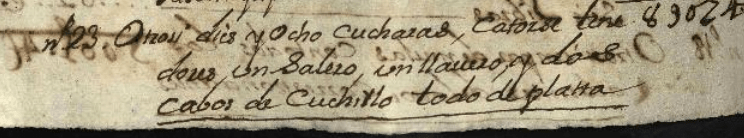 nº 23. Otrosi dies y Ocho Cucharas, Catorse tene
dores, un Salero, un llavero, y dos
Cabos de Cuchillo todo de platta